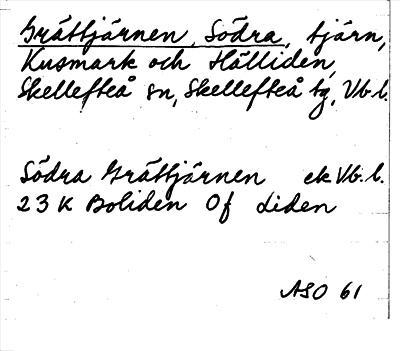 Gråttjärnen, Södra, tjärn,
Kusmark och Hälliden,
Skellefteå sn, Skellefteå tg, Vb. l.
Södra Gråttjärnen ek Vb. l.
23 K Boliden Of Liden
ASO 61